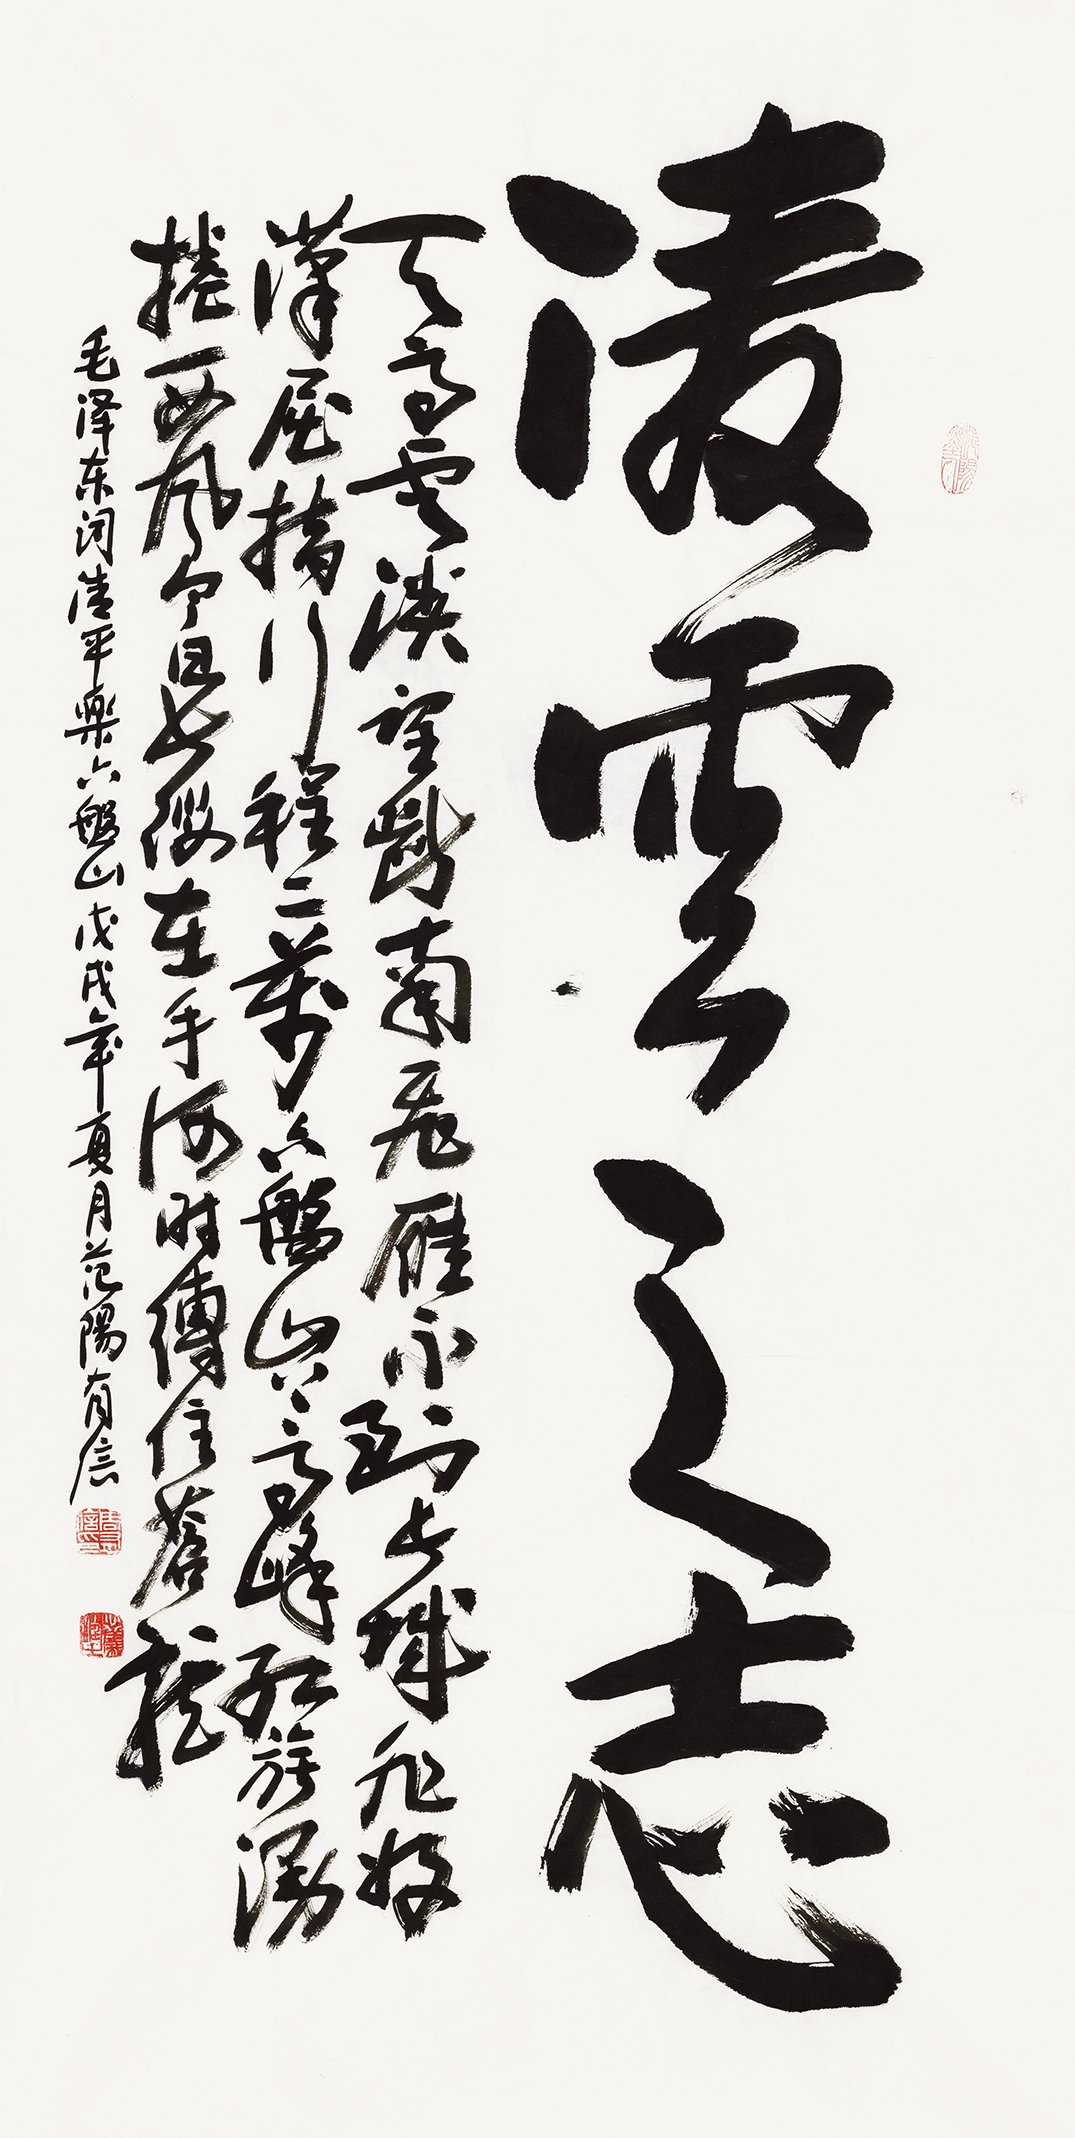 凌雲之志
天高雲淡望斷南飛雁不到长城非好
漢屈指行程二萬六盤山上高峰红旗漫
捲西風今日长缨在手何时縛住蒼龍
毛泽东词清平樂六盤山戊戌年夏月范陽有信